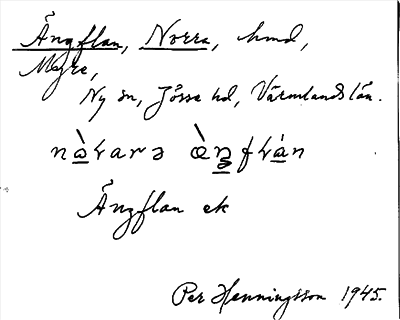 Ängflan, Norra, hmd,
Megre,
Ny sn, Jösse hd, Värmlands län.
Ängflan ek
Per Henningsson 1945.